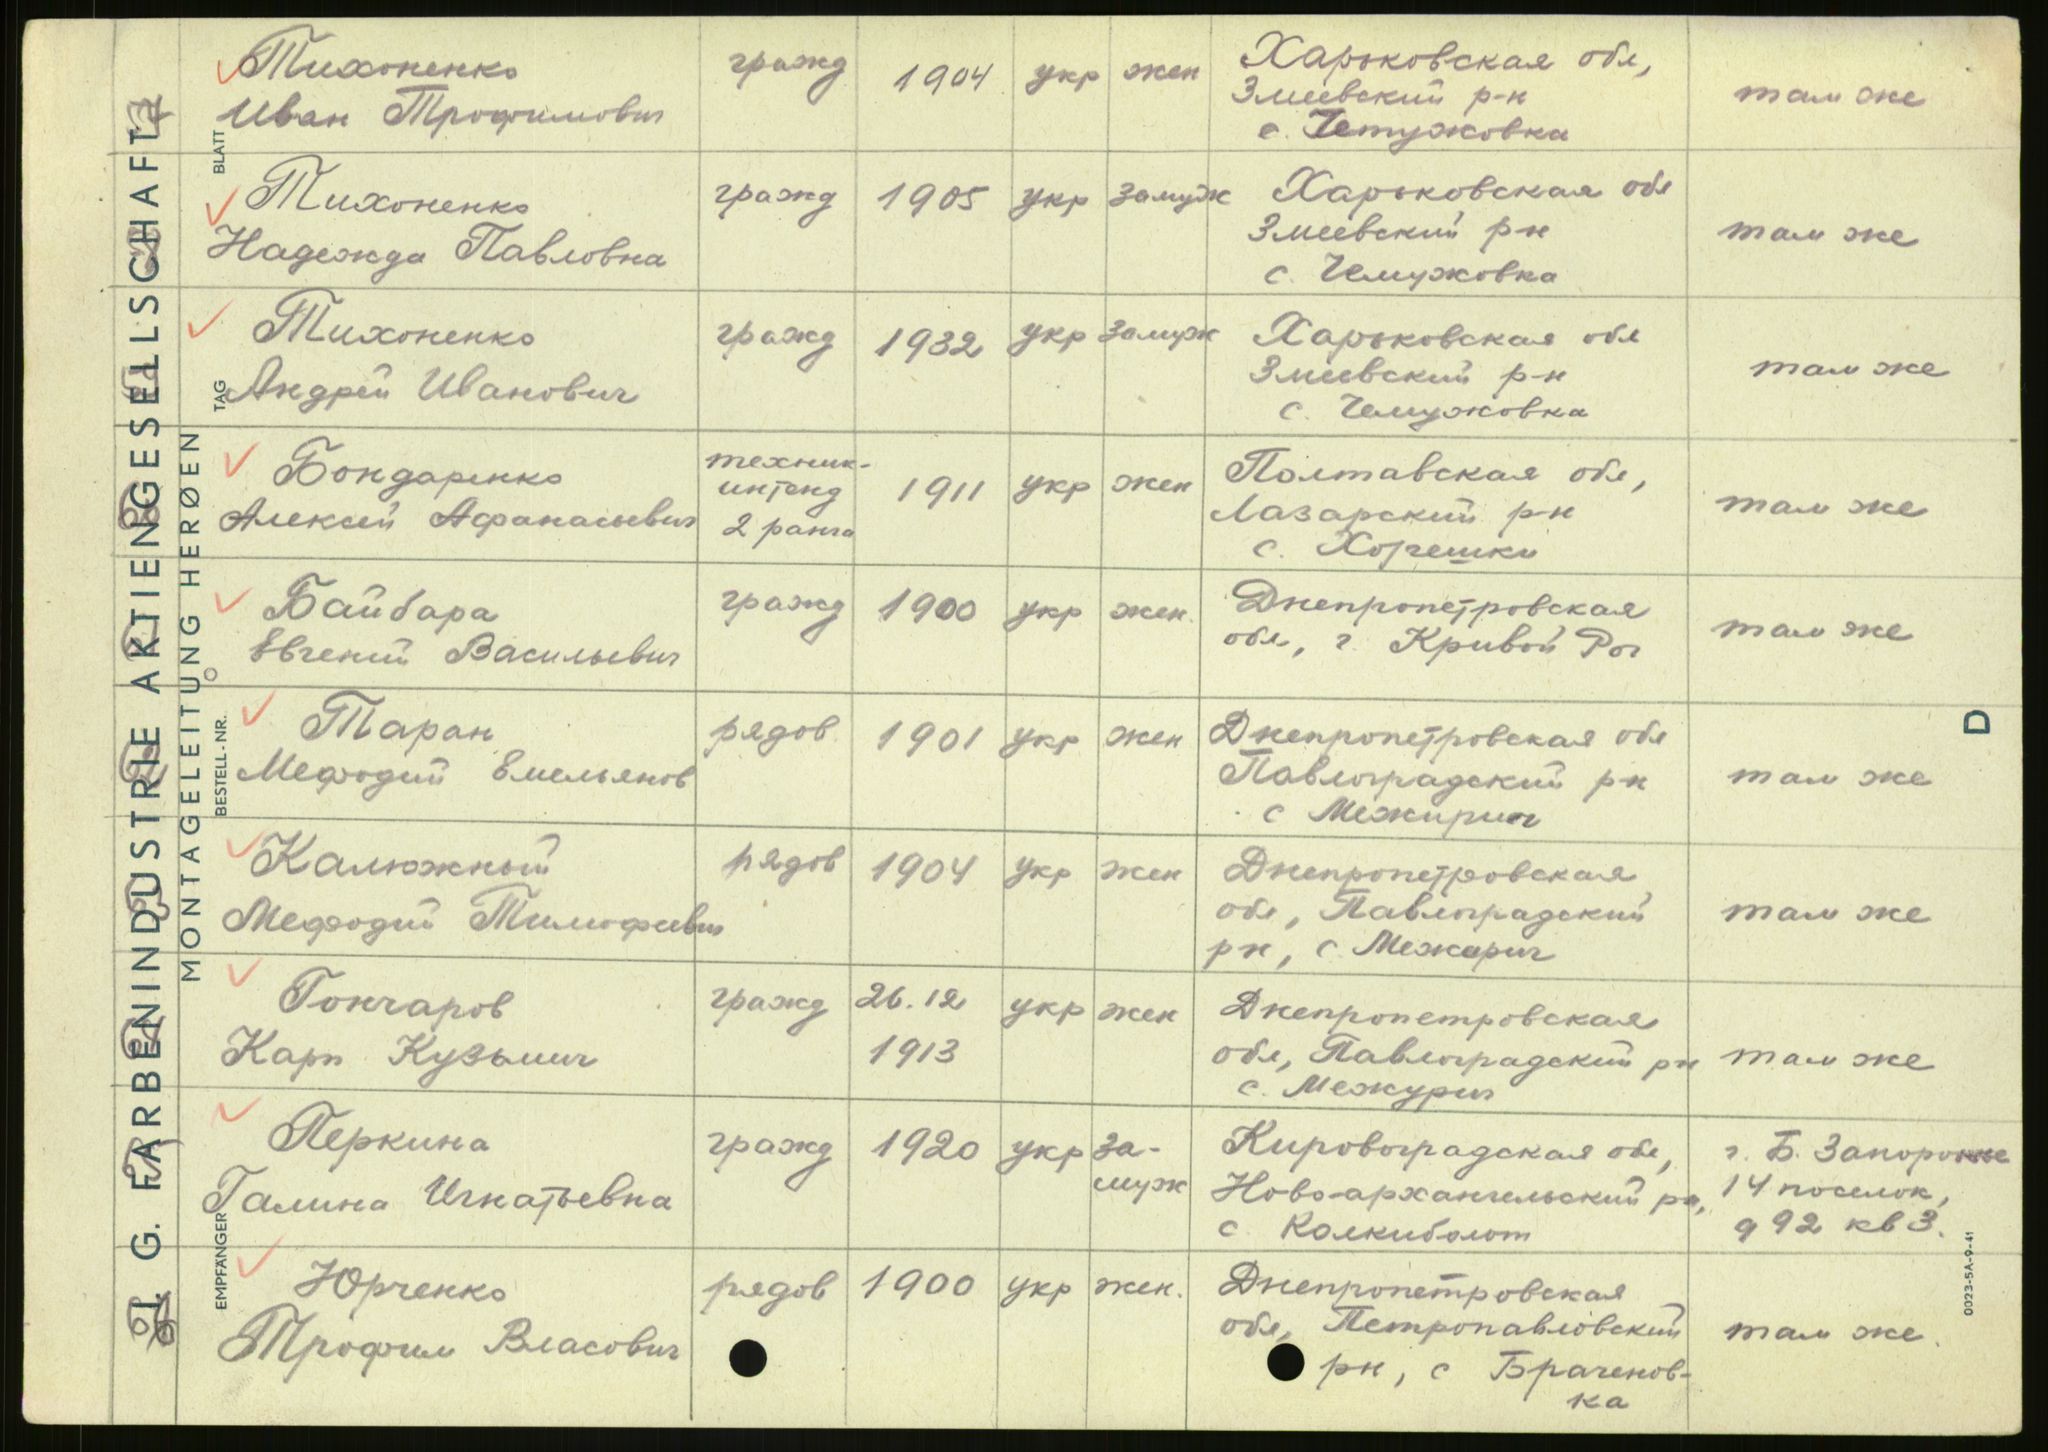 Тихоненко
Иван Трофимович
гражд
1904
укр
жен
Харьковская обл,
Змиевский р-н
с. Чемужовка
там же
Тихоненко
Надежда Павловна
гражд
1905
укр
замуж
Харьковская обл
Змиевский р-н
с. Чемужовка
там же
Тихоненко
Андрей Иванович
гражд
1932
укр
замуж
Харьковская обл
Змиевский р-н
с. Чемужовка
там же
Бондаренко
Алексей Афанасьевич
техник-
интенд
2 ранга
1911
укр
жен
Полтавская обл,
Лазарский р-н
с. Хорешки
там же
Байбара
Евгений Васильевич
гражд
1900
укр
жен.
Днепропетровская
обл, г. Кривой Рог
там же
Таран
Мефодий Емельянов
рядов
1901
укр
жен
Днепропетровская обл
Павлоградский р-н
с Межирич
там же
Калюжный
Мефодий Тимофеевич
рядов
1904
укр
жен
Днепропетровская
обл, Павлоградский
р-н, с. Межирич
там же
Гончаров
Карп Кузьмич
гражд
26.12
1913
укр
жен
Днепропетровская
обл, Павлоградский р-н
с. Межурич
там же
Перкина
Галина Игнатьевна
гражд
1920
укр
за-
муж
Кировоградская обл,
Ново-архангельский р-н,
с. Колкиболот
г. Б. Запорожье
14 поселок,
д 92 кв 3.
Юрченко
Трофим Власович
рядов
1900
укр
жен.
Днепропетровская
обл, Петропавловский
рн, с Браченов-
ка
там же.
I. G. FARBENINDUSTRIE AKTIENGESELLSCHAFT
MONTAGELEITUNG HERØEN
EMPFÄNGER
BESTELL-NR.
TAG
BLATT
D
0023-5A-9-41